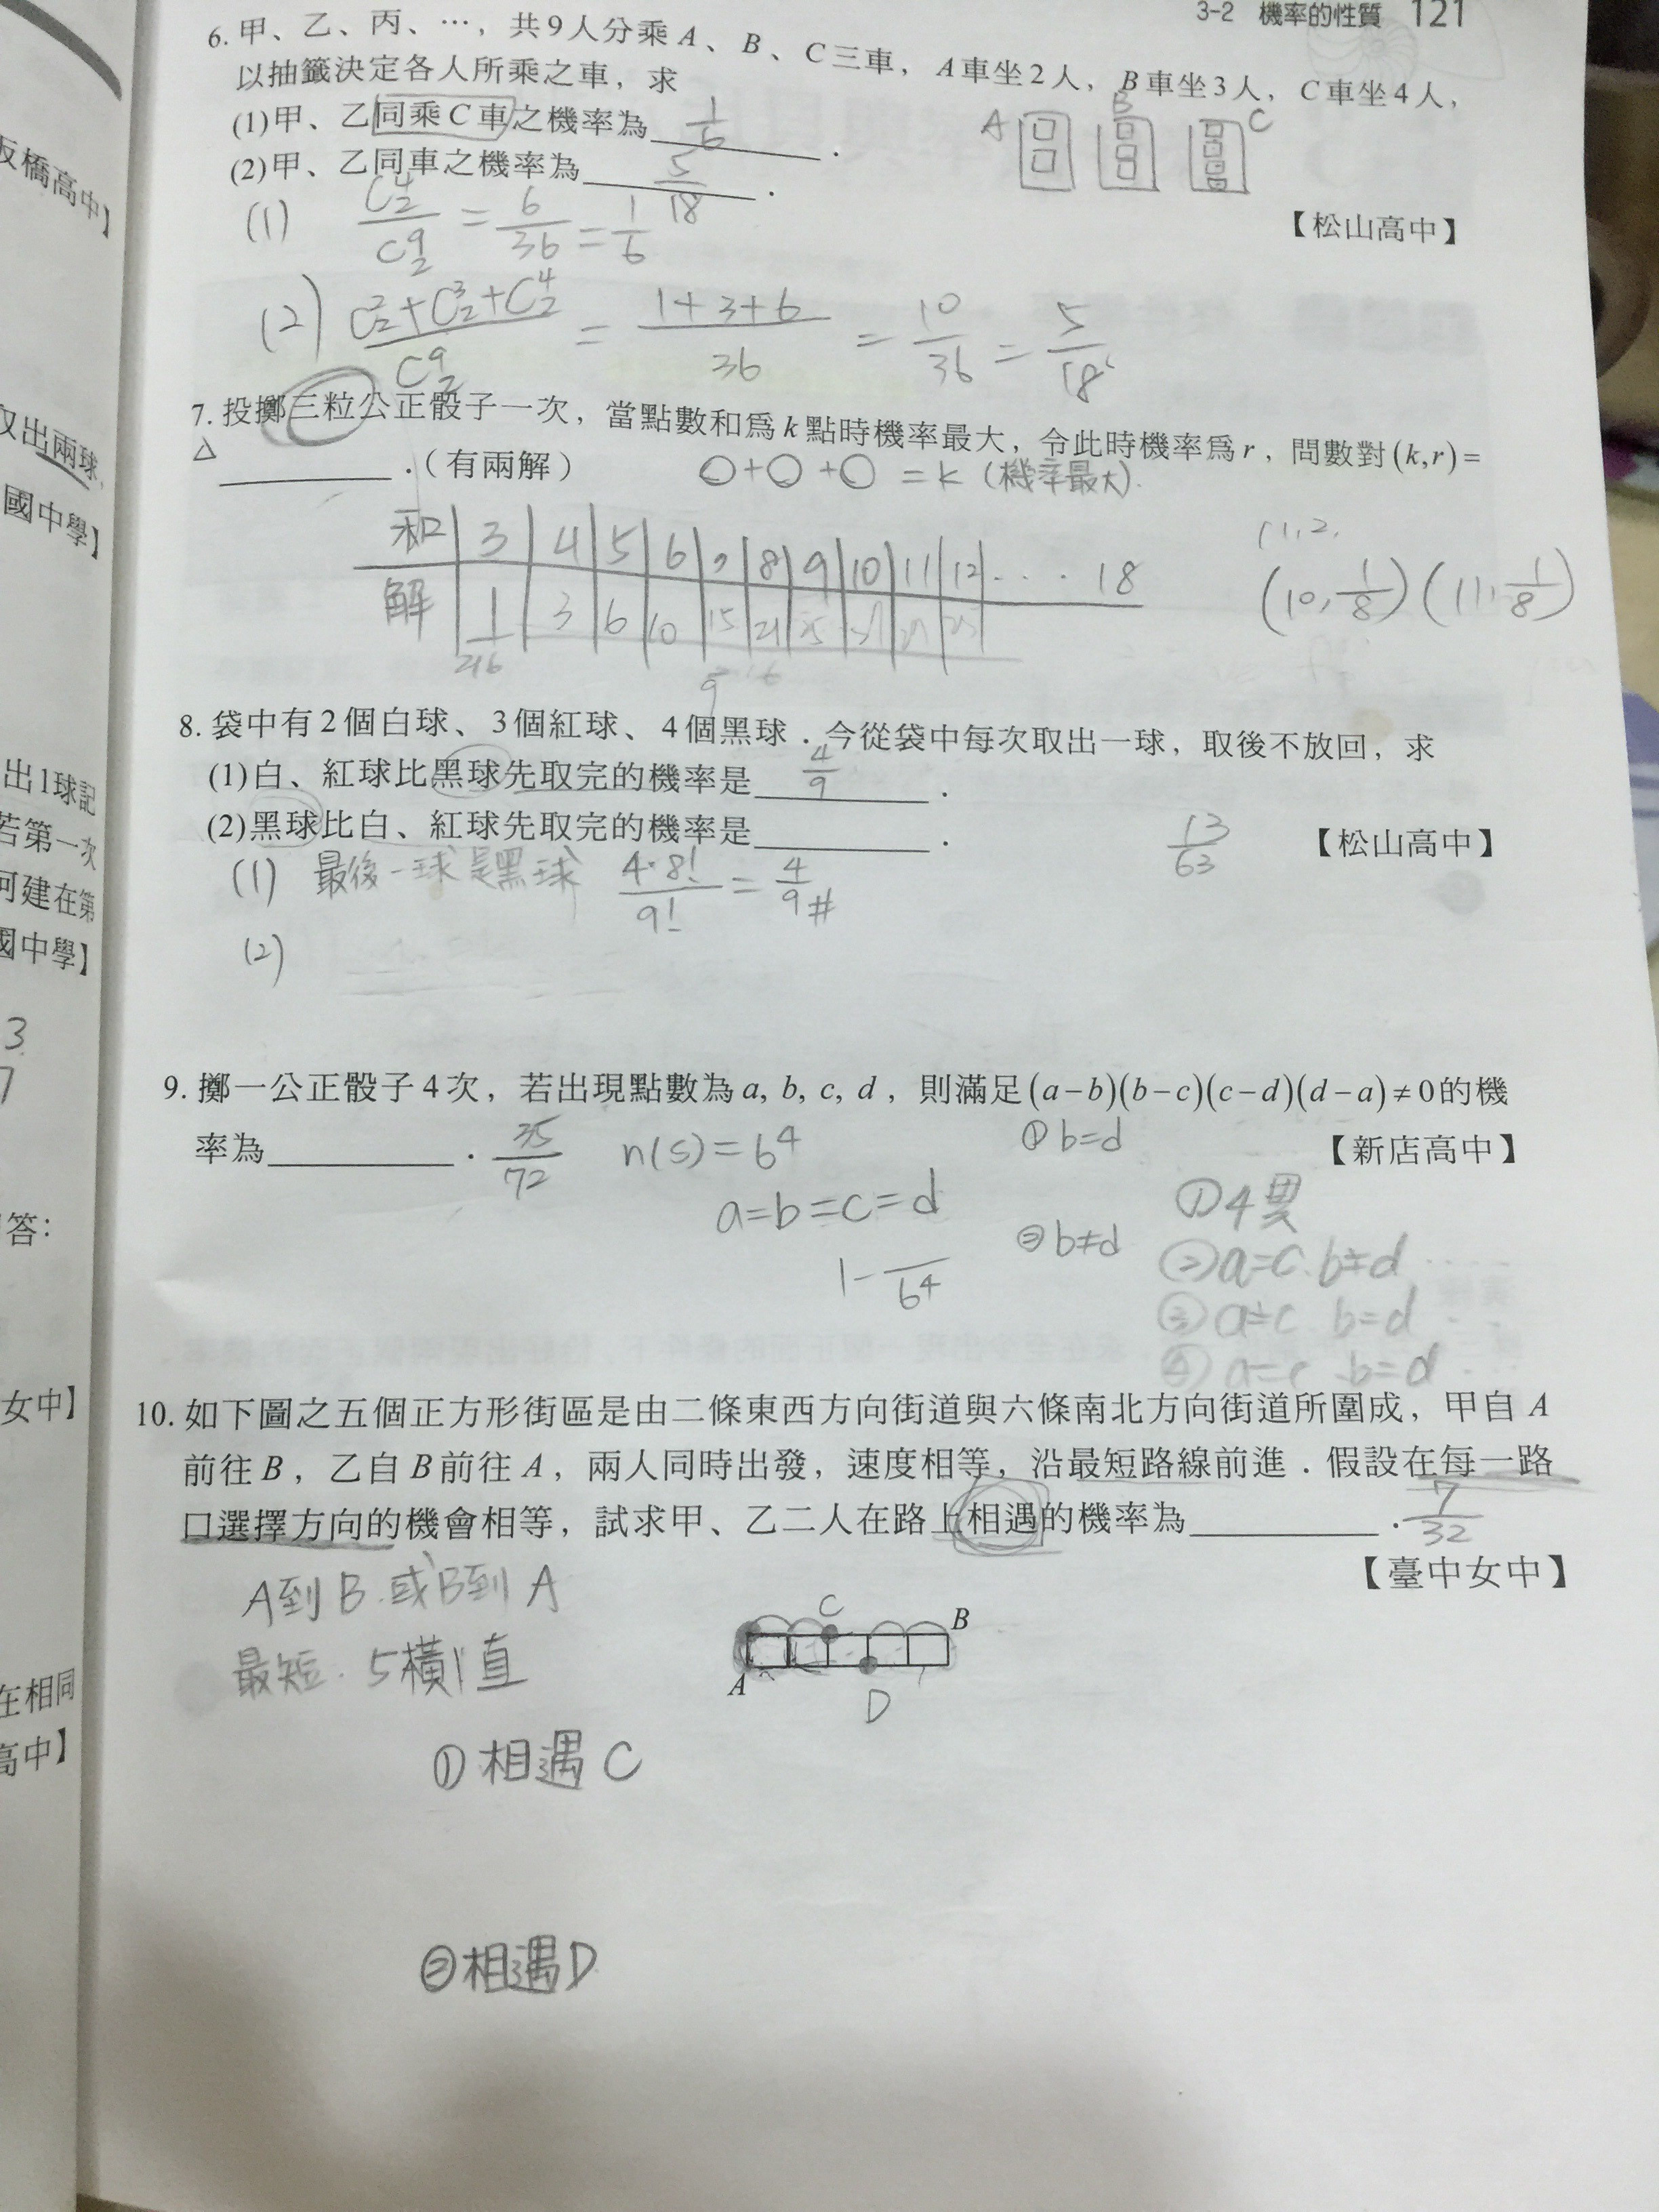 3-2 機率的性質 121
6. 甲、乙、丙、…，共9人分乘A、B、C三車，A車坐2人，B車坐3人，C車坐4人，
以抽籤決定各人所乘之車，求
(1)甲、乙同乘C車之機率為 1/6 .
(2)甲、乙同車之機率為 5/18 .
A B C
【松山高中】
(1) C⁴₂/C⁹₂ = 6/36 = 1/6
(2) C²₂+C³₂+C⁴₂/C⁹₂ = 1+3+6/36 = 10/36 = 5/18
7. 投擲三粒公正骰子一次，當點數和為k點時機率最大，令此時機率為r，問數對(k,r)=
△ .（有兩解）
○+○+○=k (機率最大).
和 3 4 5 6 7 8 9 10 11 12 ... 18
解 1 3 6 10 15 21 25
216
(10,1/8) (11,1/8)
8. 袋中有2個白球、3個紅球、4個黑球．今從袋中每次取出一球，取後不放回，求
(1)白、紅球比黑球先取完的機率是 4/9 .
(2)黑球比白、紅球先取完的機率是 .
13/63
【松山高中】
(1) 最後一球是黑球 4·8!/9! = 4/9 #
(2)
9. 擲一公正骰子4次，若出現點數為a, b, c, d，則滿足(a−b)(b−c)(c−d)(d−a)≠0的機
率為 . 35/72
【新店高中】
n(s)=6⁴
① b=d
a=b=c=d
② b≠d
1- /6⁴
① 4異
② a=c. b≠d
③ a≠c b=d
④ a=c b=d
10. 如下圖之五個正方形街區是由二條東西方向街道與六條南北方向街道所圍成，甲自A
前往B，乙自B前往A，兩人同時出發，速度相等，沿最短路線前進．假設在每一路
口選擇方向的機會相等，試求甲、乙二人在路上相遇的機率為 . 7/32
【臺中女中】
A到B.或B到A
最短. 5橫1直
C
B
A
D
① 相遇C
② 相遇D
板橋高中】
取出兩球
國中學】
出1球記
若第一次
可建在第
國中學】
3
7
答：
女中】
在相同
高中】